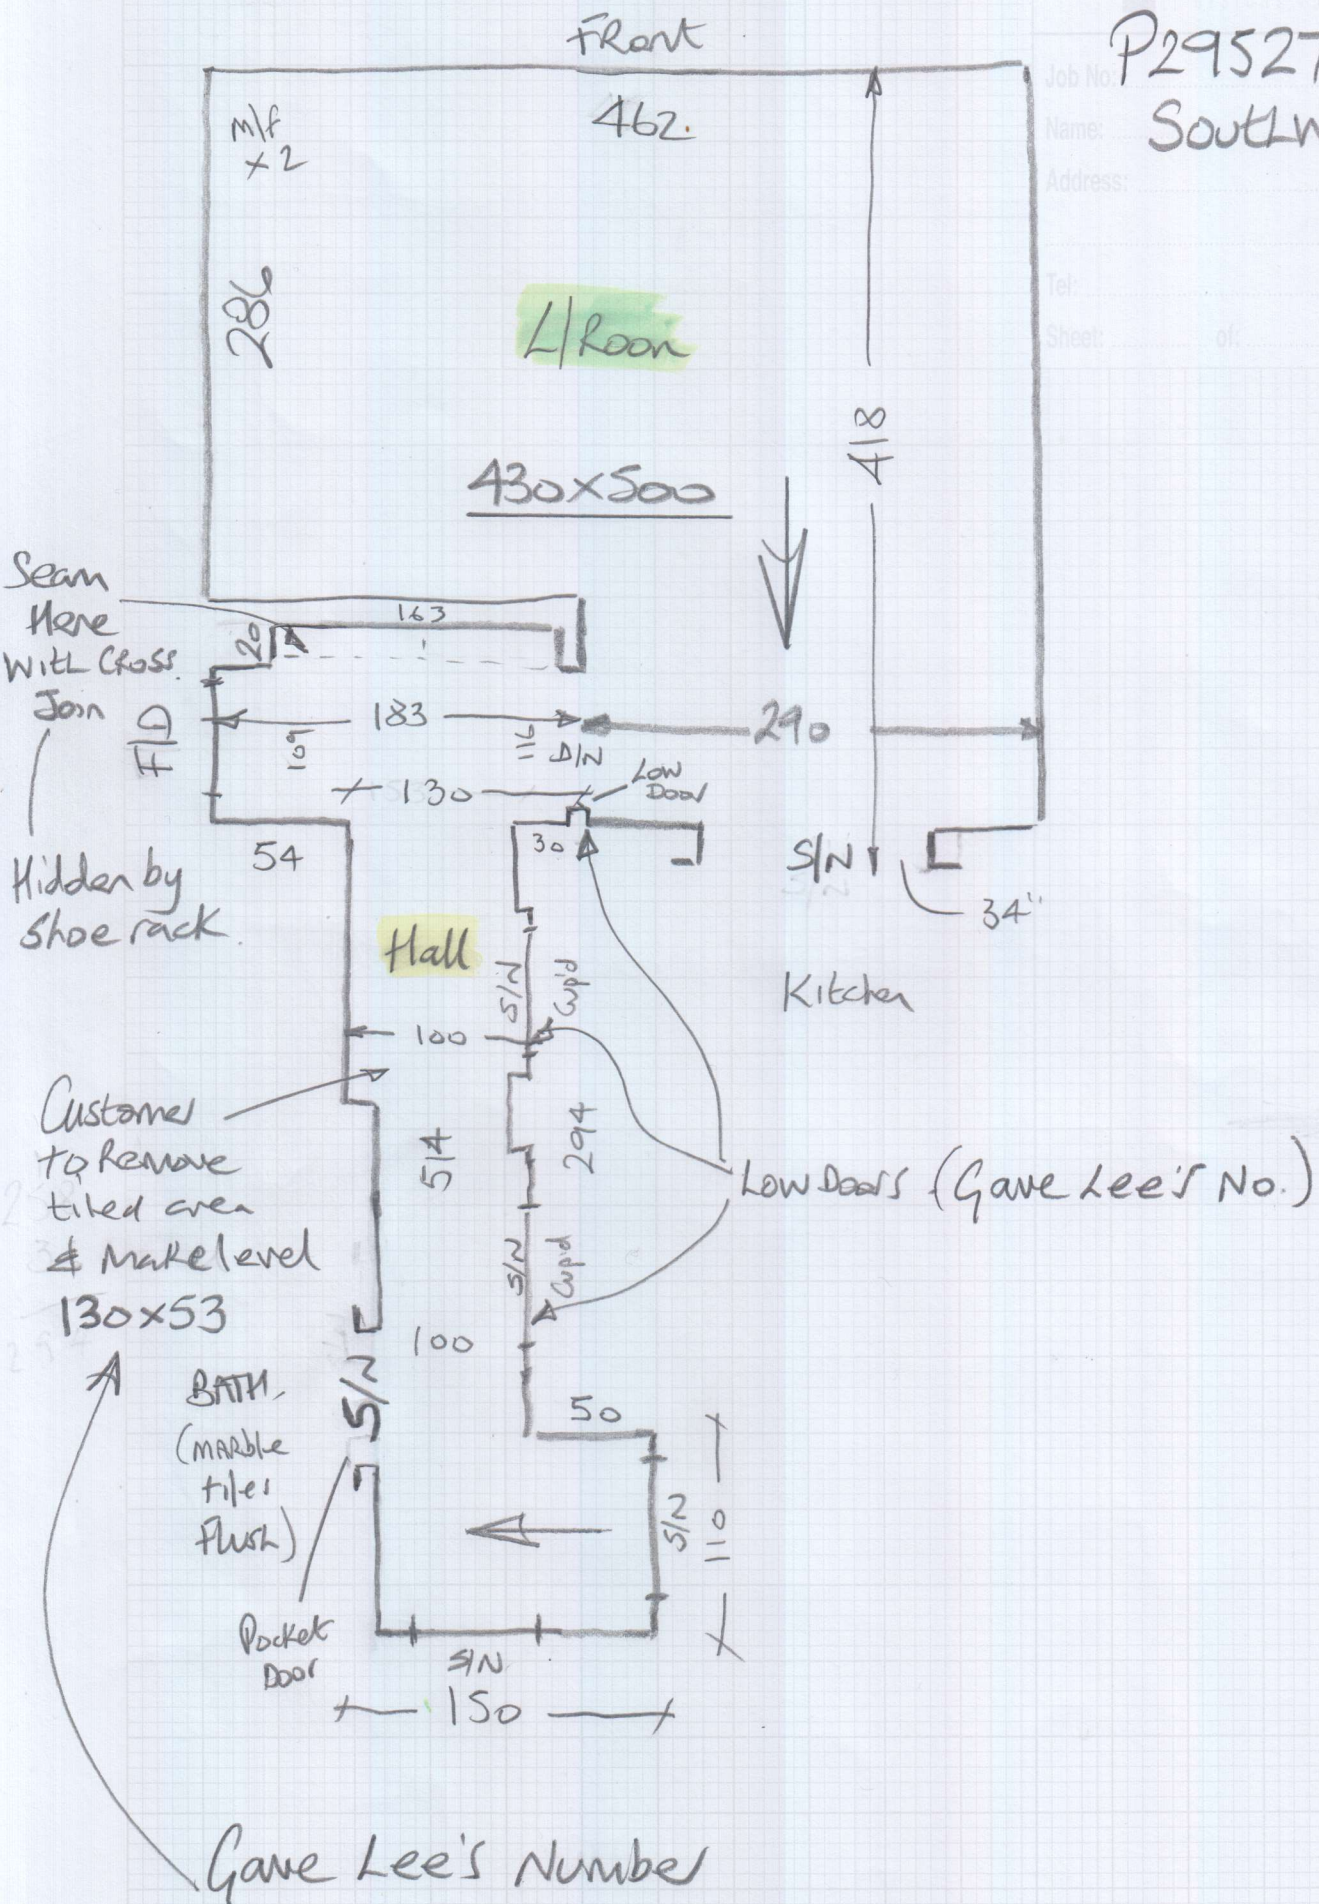 Front
P29527
Job No:
Name:
Address:
Tel:
Sheet: of:
m/f
x 2
462.
286
L/Room
418
430x500
Seam
Here
With Cross
Join
Hidden by
Shoe rack.
163
20
F/D
183
109
116
D/N
290
130
Low
Door
54
30
S/N
34"
Hall
S/N
Cup'd
Kitchen
100
Customer
to Remove
tiled area
& Make level
130x53
514
294
Low Doors (Gave Lee's No.)
S/N
Cup'd
100
S/N
BATH.
(MARble
tiles
Flush)
50
S/N
110
Pocket
Door
S/N
150
Gave Lee's Number